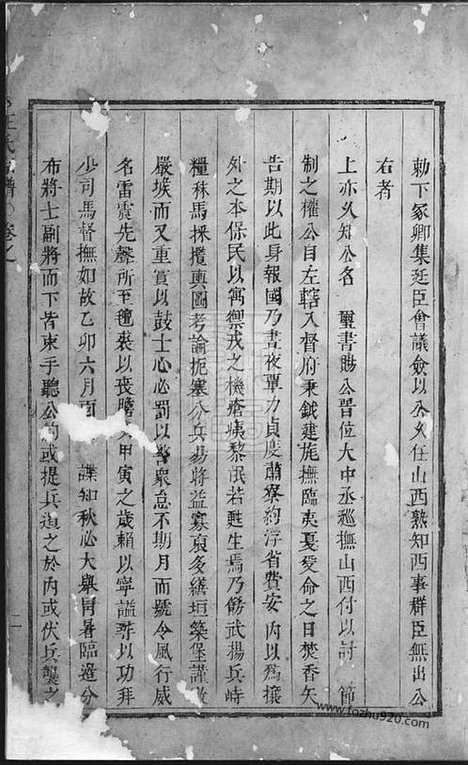 勅下冡卿集廷臣會議僉以公久任山西熟知西事群臣無出公
右者
上亦久知公名 璽書賜公晋位大中丞廵撫山西付以討 節
制之權公自左轄入督府秉鉞建旄撫臨夷夏受命之日焚香矢
告期以此身報國乃晝夜單力貞慶肅寮約浮省費安内以為攘
外之本保民以寓禦戎之機瘡痍黎氓若甦生焉乃餙武揚兵峙
糧秣馬採攬輿圖考論扼塞分兵易將益寡裒多繕垣築堡謹
嚴堠而又重賞以鼓士心必罰以警衆怠不期月而號令風行威
名雷震先聲所至氊裘以喪膽 甲寅之歲賴以寧謐尋以功拜
少司馬督撫如故乙卯六月 諜知秋必大舉 冐暑臨邉分
布將士副將而下皆束手聽公約 或提兵 之於内或伏兵襲之
氏 譜 卷之
www.fozhu920.com